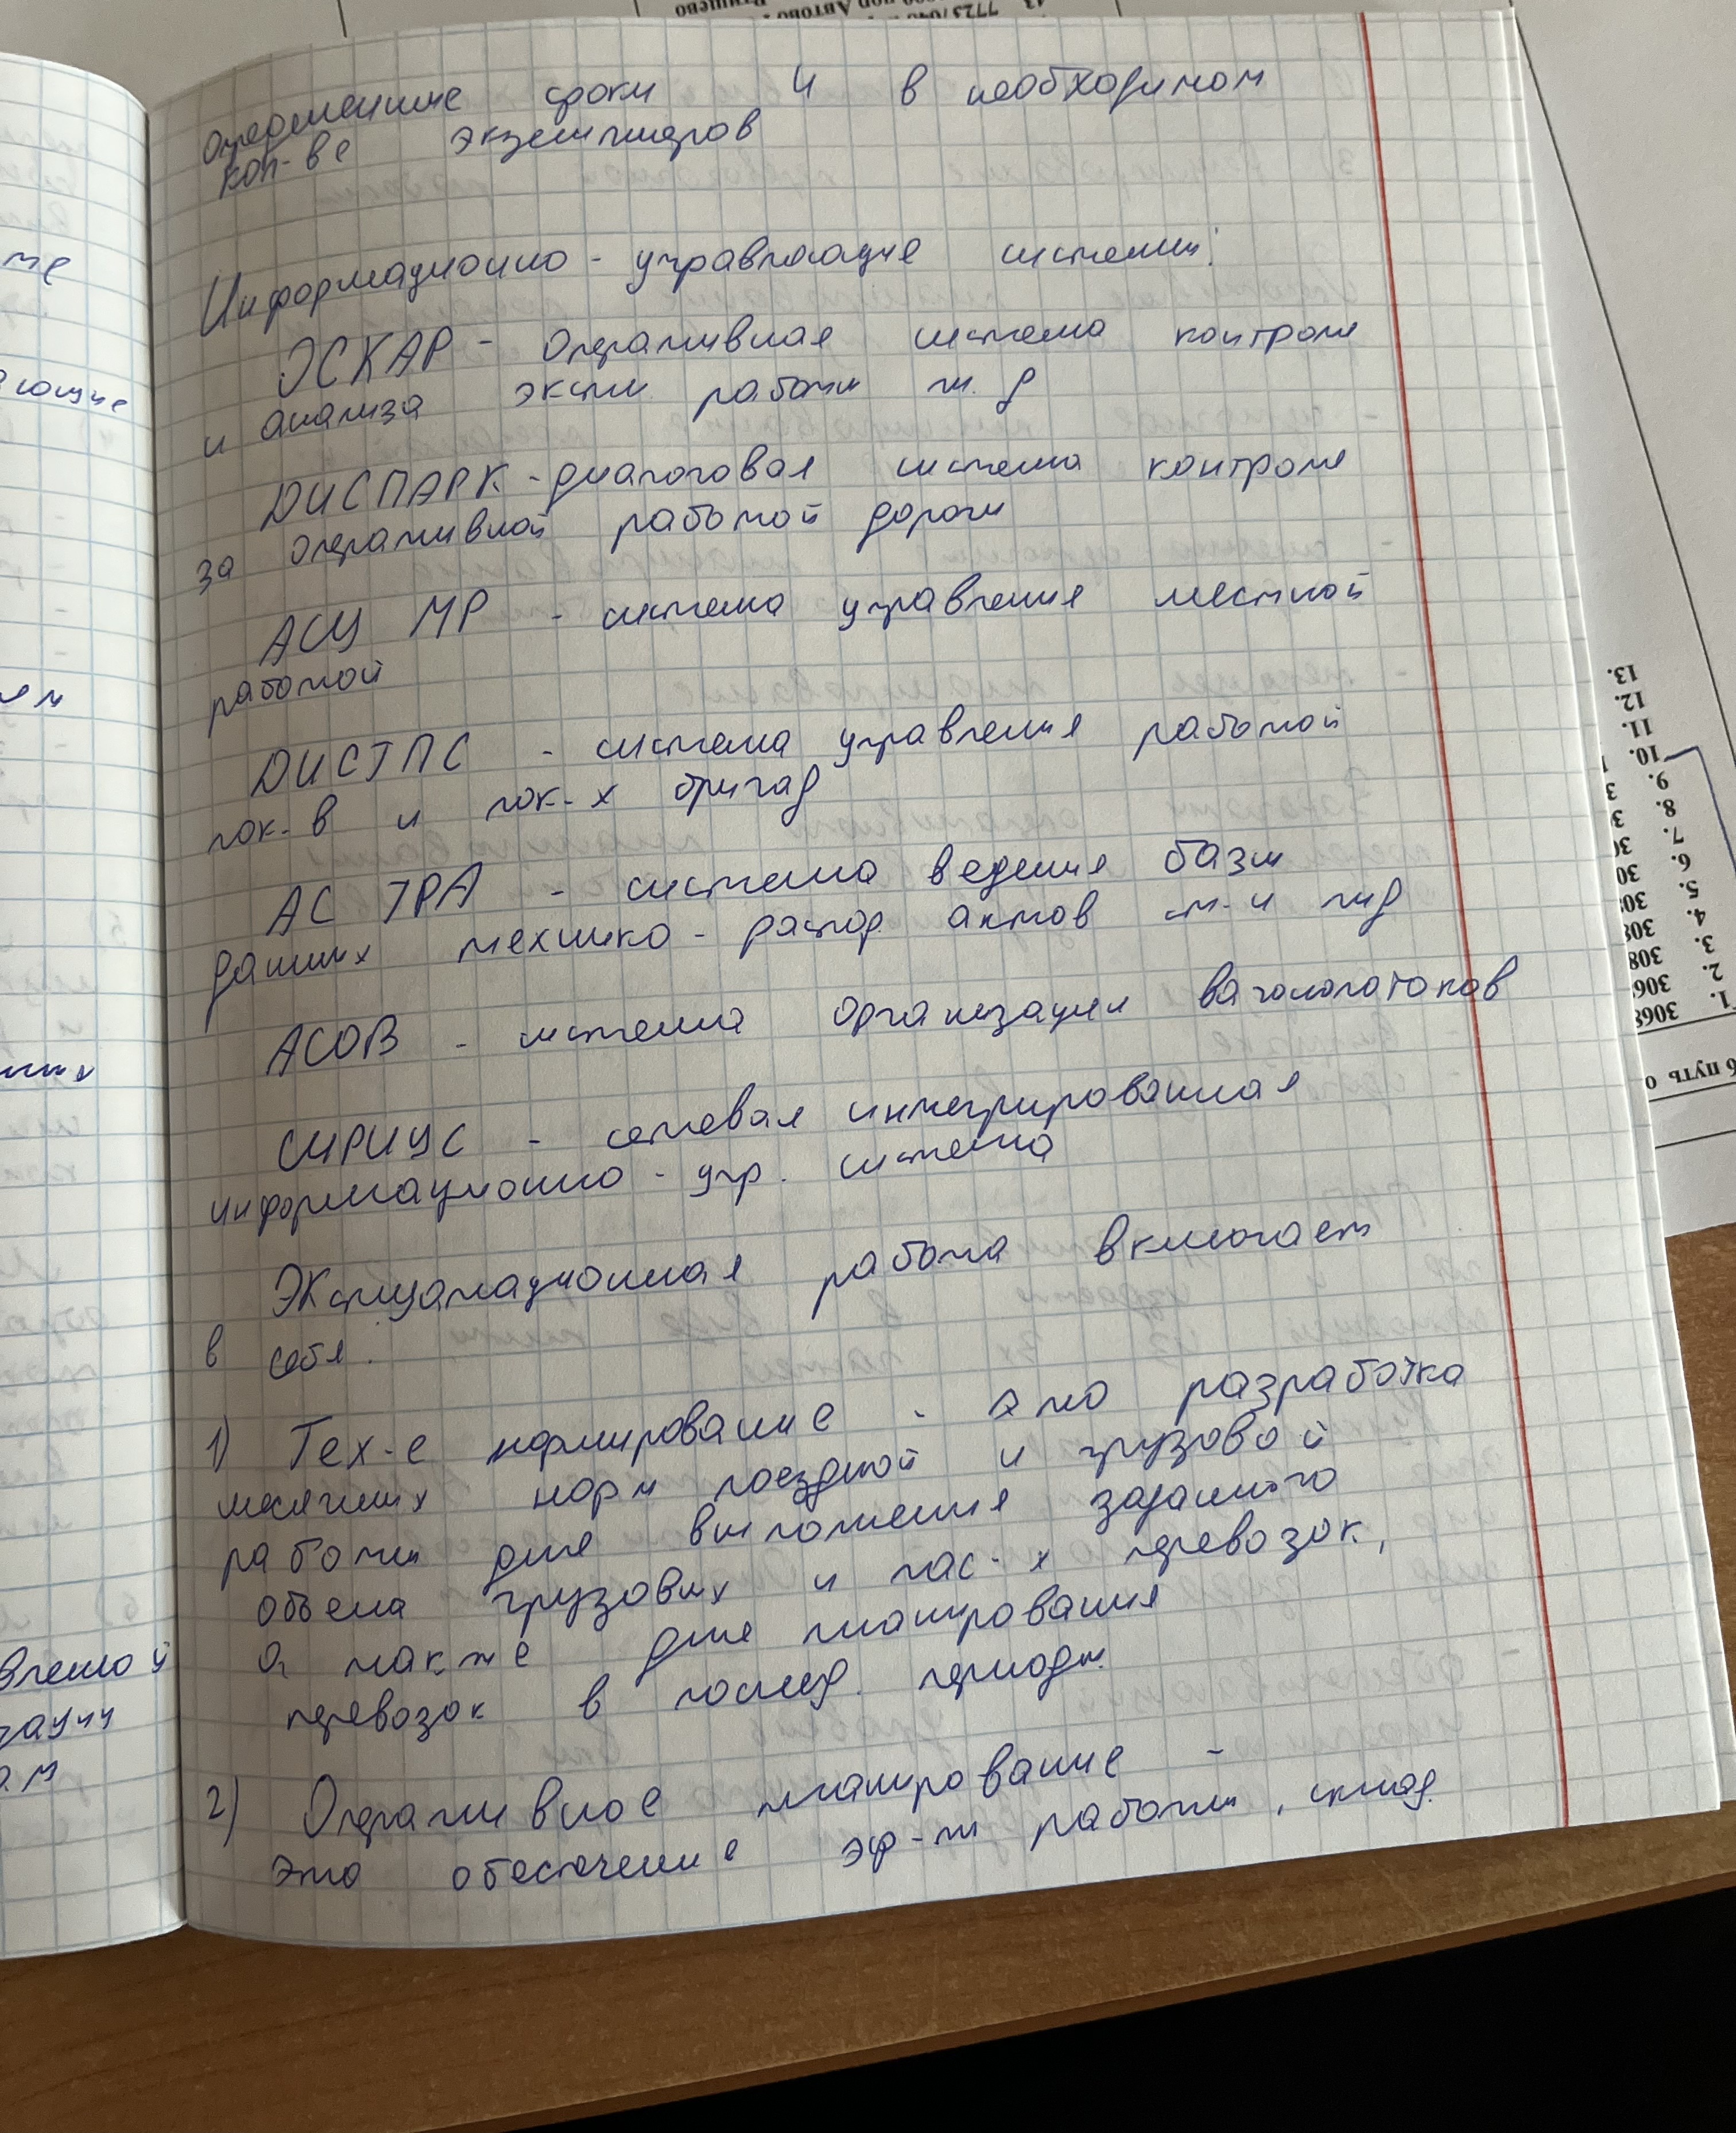 определенные сроки и в необходимом
кол-ве экземпляров
Информационно - управляющие системы:
ЭСКАР - оперативная система контроля
и анализа экспл работы ж. д
ДИСПАРК - диалоговая система контроля
за оперативной работой дороги
АСУ МР - система управления местной
работой
ДИСТПС - система управления работой
лок-в и лок-х бригад
АС ТРА - система ведения базы
данных технико - распор актов ст-и
АСОВ - система организации вагонопотоков
СИРИУС - сетевая интегрированная
информационно - упр. система
Эксплуатационная работа включает
в себя.
1) Тех-е нормирование - это разработка
месячных норм поездной и грузовой
работы для выполнения заданного
объема грузовых и пас-х перевозок,
а также для планирования
перевозок в послед. периоды.
2) Оперативное планирование -
это обеспечение эф-ти работы,
ме
ающие
ем
вленной
13.
12.
11.
10.
9.
8.
7.
6. 30
5. 308
4. 308
3. 308
2. 306
1. 3068
6 путь о